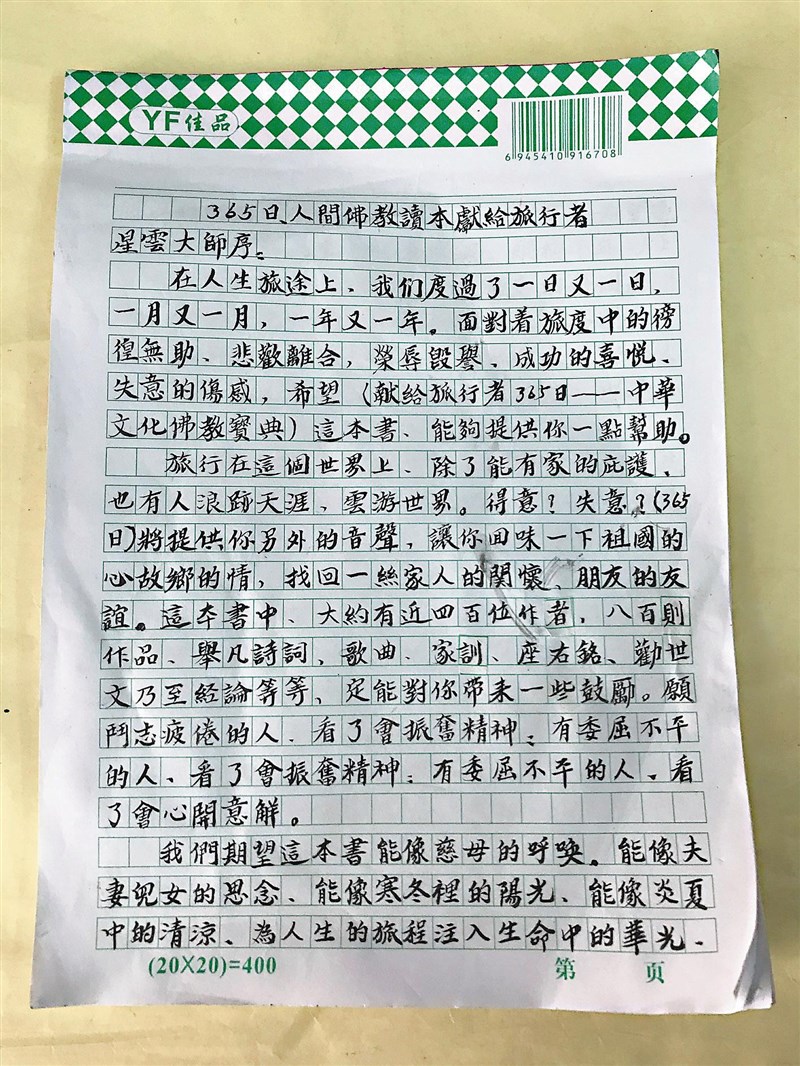 YF佳品
6 945410 916708
365日、人間佛教讀本獻給旅行者
星雲大師序:
在人生旅途上、我们度過了一日又一日,
一月又一月,一年又一年。面對着旅度中的徬
徨無助、悲歡離合,榮辱毀譽、成功的喜悅、
失意的傷感,希望(献給旅行者365日——中華
文化佛教寶典)這本書、能夠提供你一點幫助。
旅行在這個世界上、除了能有家的庇護、
也有人浪跡天涯,雲游世界。得意?失意?(365
日)將提供你另外的音聲,讓你回味一下祖國的
心故鄉的情,找回一絲家人的関懷、朋友的友
誼。這本書中、大約有近四百位作者,八百則
作品、舉凡詩詞、歌曲、家訓、座右銘、勸世
文乃至経論等等、定能對你帶来一些鼓勵。願
鬥志疲倦的人、看了會振奮精神;有委屈不平
的人、看了會振奮精神;有委屈不平的人、看
了會心開意解。
我們期望這本書能像慈母的呼唤。能像夫
妻兒女的思念、能像寒冬裡的陽光、能像炎夏
中的清涼、為人生的旅程注入生命中的華光、
(20X20)=400 第 页